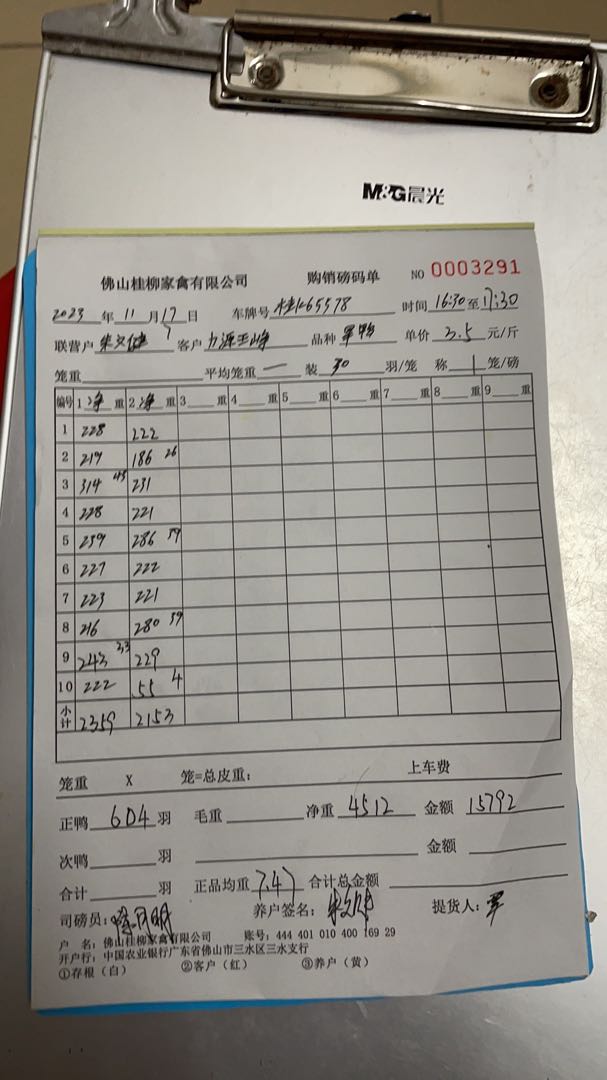 M&G晨光
佛山桂柳家禽有限公司 购销磅码单 NO 0003291
2023 年 11 月 17 日 车牌号 桂K65578 时间 16:30 至 17:30
联营户 客户 品种 单价 3.5 元/斤
笼重 平均笼重 一 装 30 羽/笼 称 1 笼/磅
编号 1 净 重 2 净 重 3 重 4 重 5 重 6 重 7 重 8 重 9 重
1 228 222
2 219 186 26
3 314 43 231
4 228 221
5 239 286 39
6 227 222
7 223 221
8 216 280 39
9 243 33 229
10 222 55 4
小计 2359 2153
笼重 X 笼=总皮重: 上车费
正鸭 604 羽 毛重 净重 4512 金额 15792
次鸭 羽 金额
合计 羽 正品均重 7.47 合计总金额
司磅员: 养户签名: 提货人:
户 名: 佛山桂柳家禽有限公司 账号: 444 401 010 400 169 29
开户行: 中国农业银行广东省佛山市三水区三水支行
①存根(白) ②客户(红) ③养户(黄)